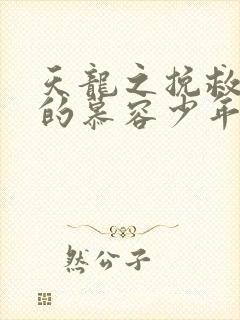 天龍之挽救
的慕容少年
然公子